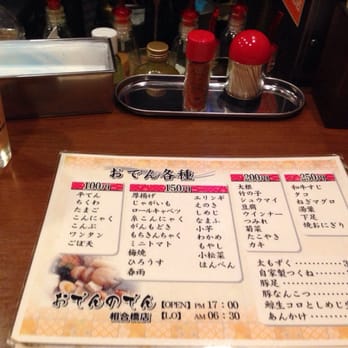 おでん各種
100円
平てん
ちくわ
たまご
こんにゃく
こんぶ
ワンタン
ごぼ天
150円
厚揚げ
じゃがいも
ロールキャベツ
糸こんにゃく
がんもどき
もちきんちゃく
ミニトマト
梅焼
ひろうす
春雨
エリンギ
えのき
しめじ
なまふ
小芋
わかめ
もやし
小松菜
はんぺん
200円
大根
竹の子
シュウマイ
豆腐
ウインナー
つみれ
菊菜
たこやき
カキ
250円
和牛すじ
タコ
ねぎマグロ
湯葉
下足
焼おにぎり
太もずく
自家製つくね
豚足
豚なんこつ
鯨生コロとしめじ
あんかけ
おでんのでん
相合橋店
【OPEN】 PM 17：00
【LO】 AM 06：30